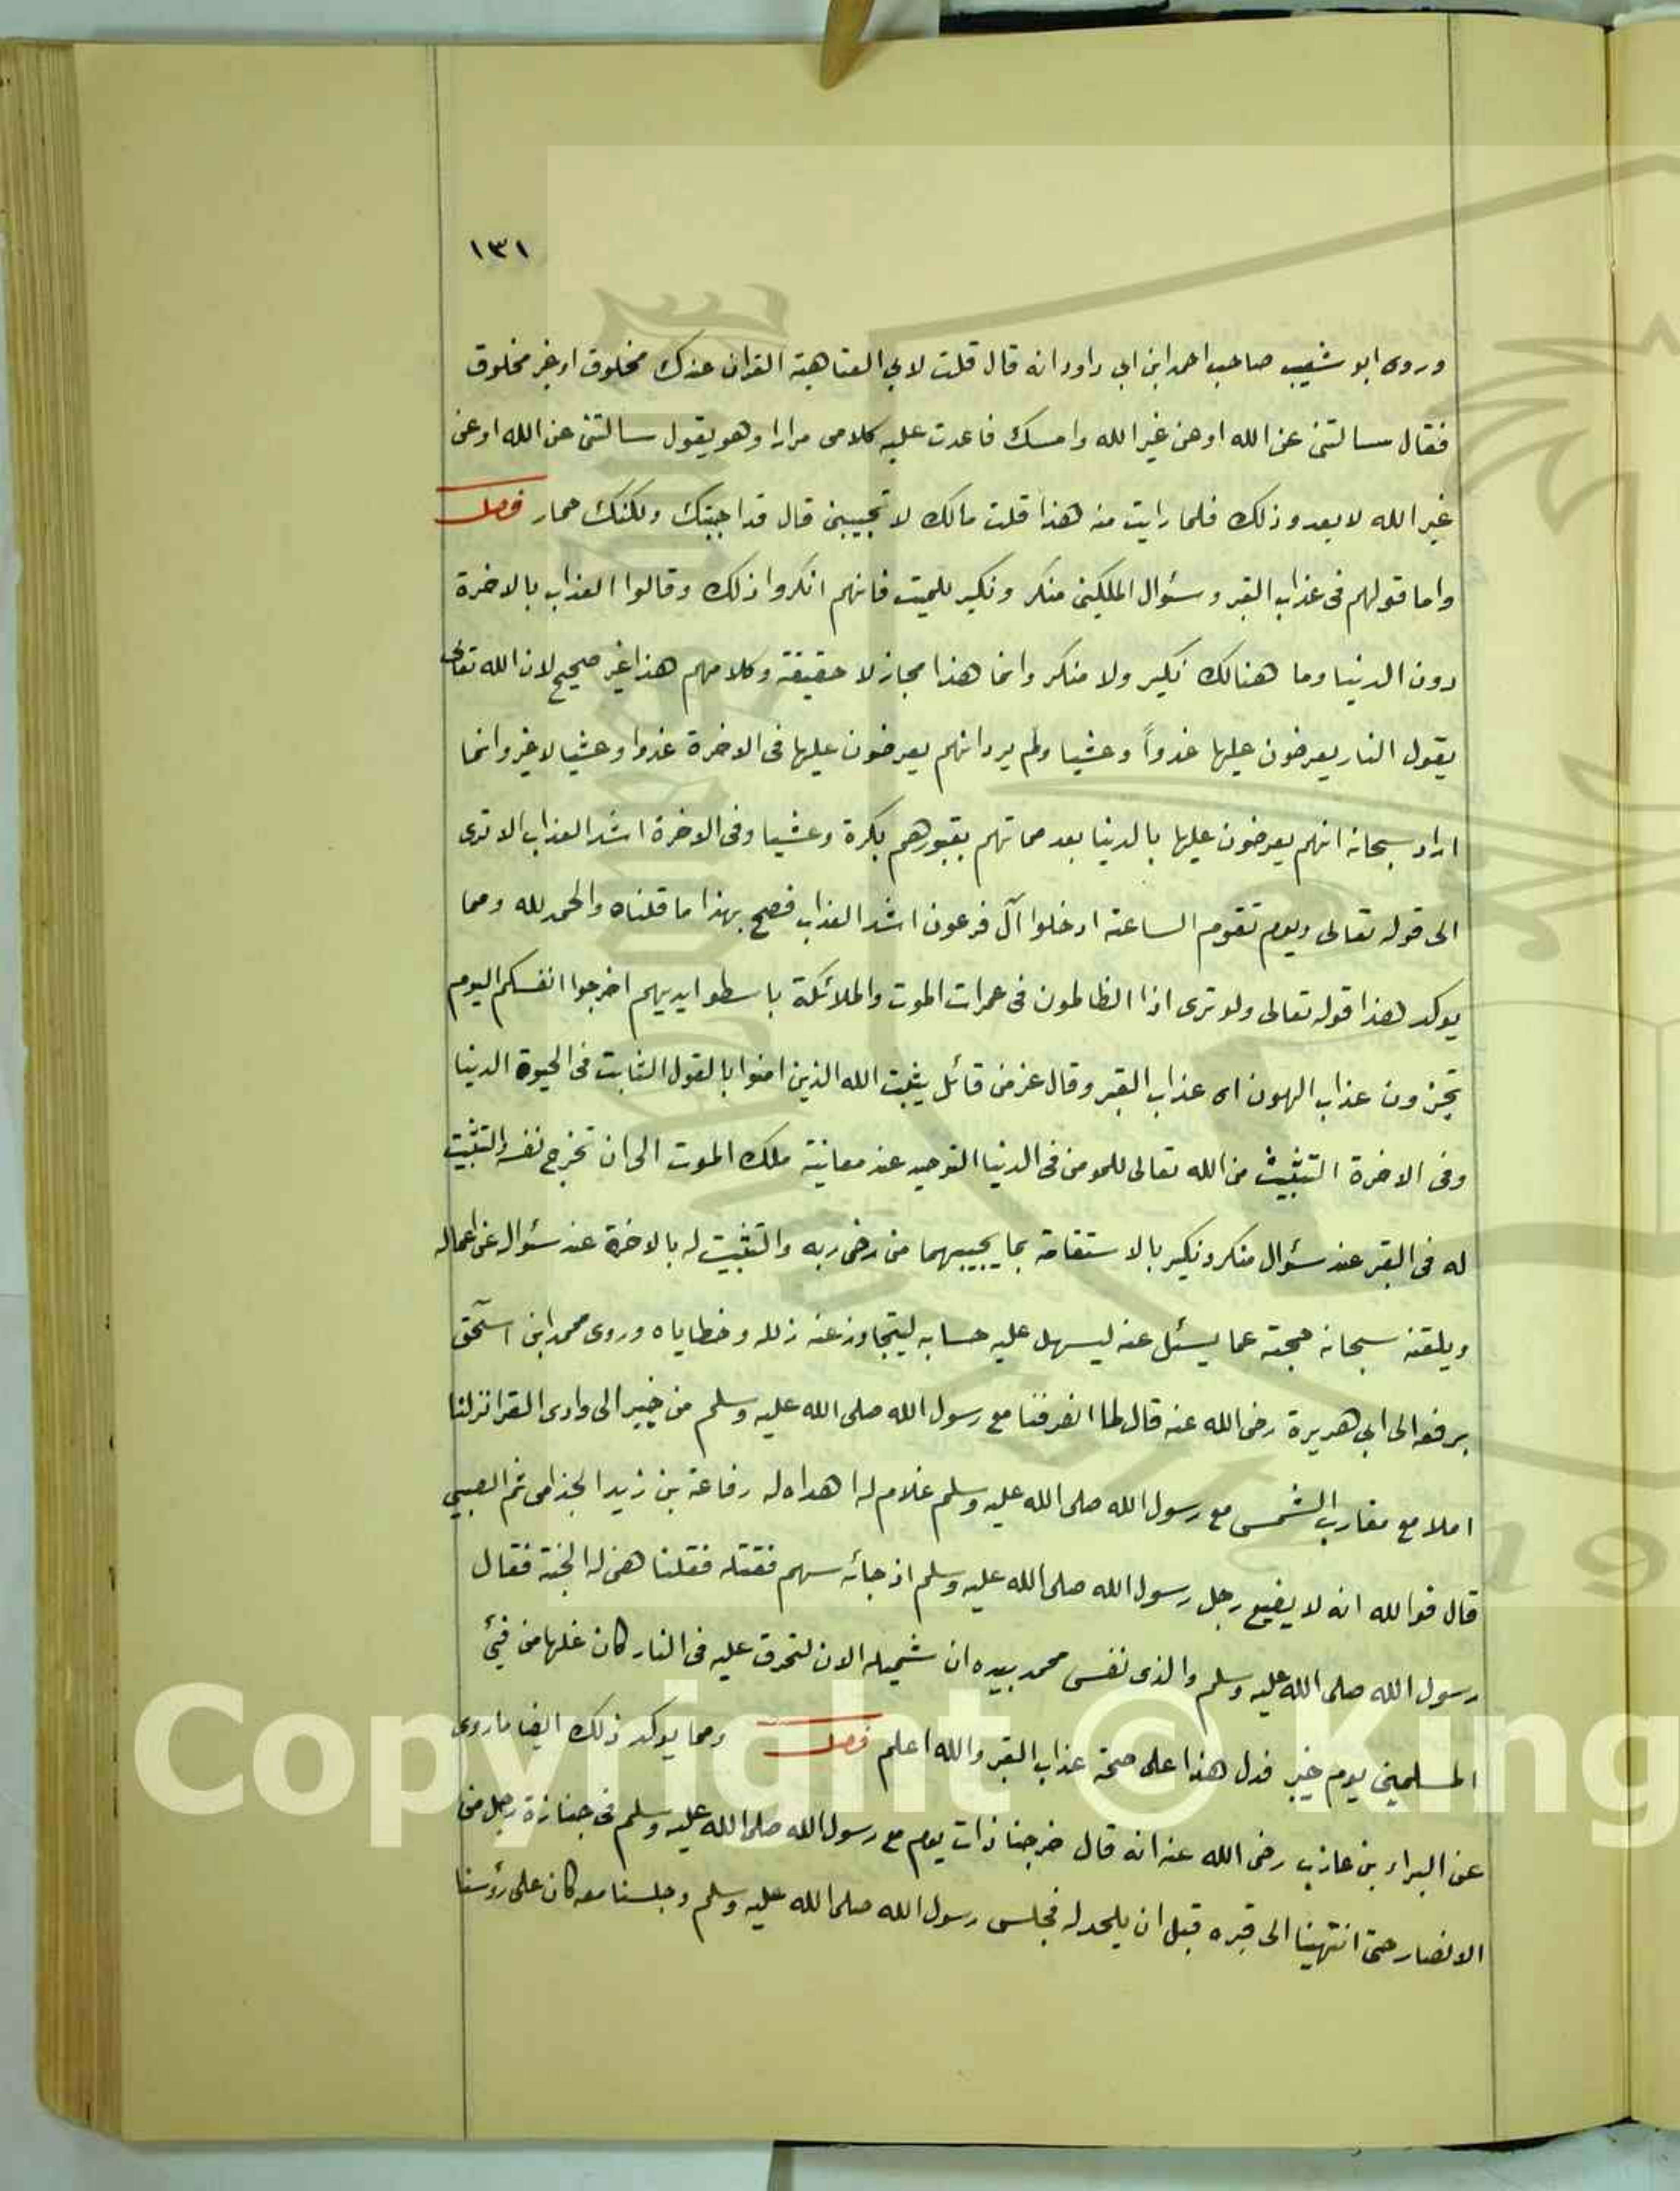 ١٣١
وروى ابو شعيب صاحب احمد ابن ابي داود انه قال قلت لابي العتاهية القران عندك مخلوق او غير مخلوق
فقال سالتنى عن الله او عن غير الله وامسك فاعدت عليه كلامى مرارا وهو يقول سالتنى عن الله او عن
غير الله لا يعدو ذلك فلما رايت منه هذا قلت مالك لا تجيبنى قال قد اجبتك ولكنك حمار فصل
واما قولهم فى عذاب القبر وسئوال الملكين منكر ونكير للميت فانهم انكروا ذلك وقالوا العذاب بالاخرة
دون الدنيا وما هنالك نكير ولا منكر وانما هذا مجاز لا حقيقة وكلامهم هذا غير صحيح لان الله تعالى
يقول النار يعرضون عليها غدواً وعشيا ولم يرد انهم يعرضون عليها فى الاخرة غدوا وعشيا لا غير وانما
اراد سبحانه انهم يعرضون عليها بالدنيا بعد مماتهم بقبورهم بكرة وعشيا وفى الاخرة اشد العذاب الا ترى
الى قوله تعالى ويوم تقوم الساعة ادخلوا آل فرعون اشد العذاب فصح بهذا ما قلناه والحمد لله ومما
يوكد هذا قوله تعالى ولو ترى اذا الظالمون فى غمرات الموت والملائكة باسطوا ايديهم اخرجوا انفسكم اليوم
تجزون عذاب الهون اى عذاب القبر وقال عز من قائل يثبت الله الذين امنوا بالقول الثابت فى الحيوة الدنيا
وفى الاخرة التثبيت من الله تعالى للمومن فى الدنيا التوحيد عند معاينة ملك الموت الى ان تخرج نفسه والتثبيت
له فى القبر عند سئوال منكر ونكير بالاستقامة بما يجيبهما من رضى ربه والتثبيت له بالاخرة عند سئواله عن اعماله
ويلقنه سبحانه حجته عما يسئل عنه ليسهل عليه حسابه ليتجاوز عنه زلله وخطاياه وروى محمد ابن اسحق
برفعه الى ابي هريرة رضى الله عنه قال لما انصرفنا مع رسول الله صلى الله عليه وسلم من خيبر الى وادى القرا نزلنا
املا مع مغارب الشمس مع رسول الله صلى الله عليه وسلم غلام له اهداه له رفاعة بن زيد الجذامى ثم الضبيبي
قال فوالله انه لا يضيع رحل رسول الله صلى الله عليه وسلم اذ جائه سهم فقتله فقلنا هنى له الجنة فقال
رسول الله صلى الله عليه وسلم والذى نفس محمد بيده ان شميله الان لتحرق عليه فى النار كان غلها من فيئ
المسلمين يوم خيبر فدل هذا على صحة عذاب القبر والله اعلم فصل ومما يوكد ذلك ايضا ما روى
عن البراء بن عازب رضى الله عنه انه قال خرجنا ذات يوم مع رسول الله صلى الله عليه وسلم فى جنازة رجل من
الانصار حتى انتهينا الى قبره قبل ان يلحد له فجلس رسول الله صلى الله عليه وسلم وجلسنا معه كان على رؤسنا
Copyright © King